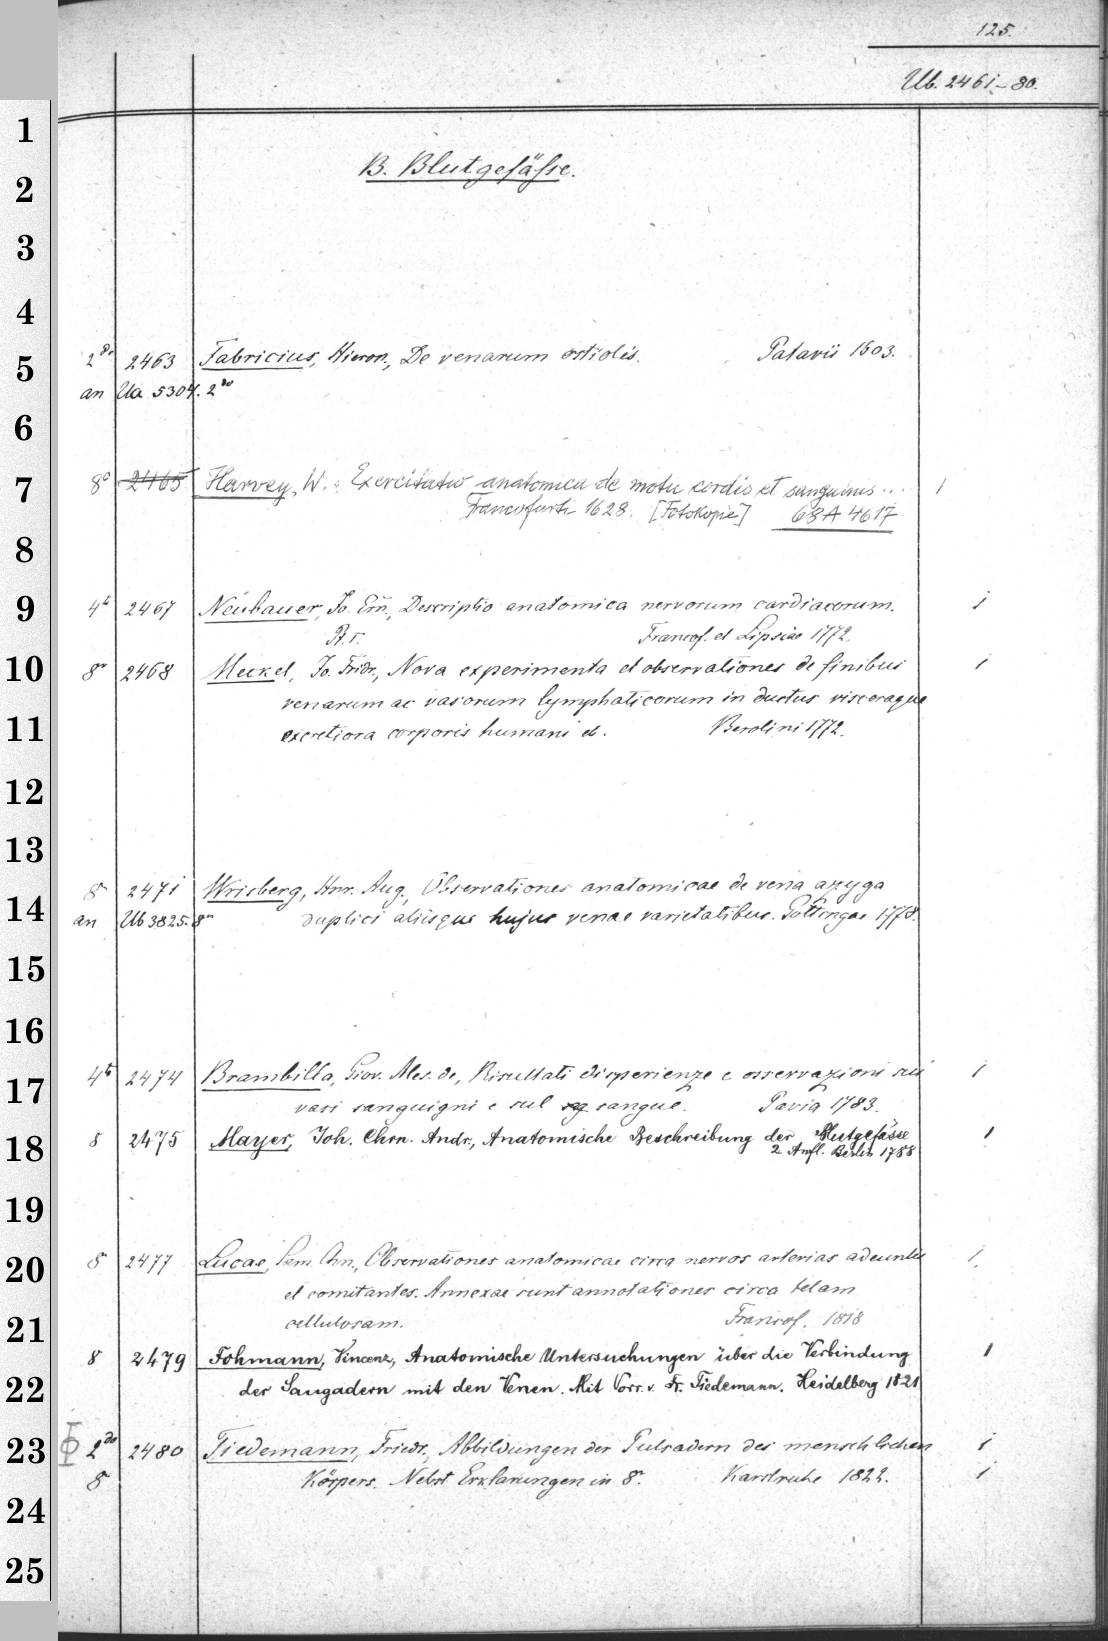 125.
Ub. 2461-80.
B. Blutgefässe.
2do 2463 Fabricius, Hieron., De venarum ostiolis. Patavii 1603.
an Ua 5304. 2do
8o 2465 Harvey, W.: Exercitatio anatomica de motu cordis et sanguinis ... 1
Francofurti 1628. [Fotokopie] 68 A 4617
4to 2467 Neubauer, Jo. Ern., Descriptio anatomica nervorum cardiacorum. 1
P.r. Francof. et Lipsiae 1772.
8o 2468 Meckel, Jo. Fridr., Nova experimenta et observationes de finibus 1
venarum ac vasorum lymphaticorum in ductus visceraque
excretiora corporis humani et. Berolini 1772.
8 2471 Wrisberg, Hnr. Aug., Observationes anatomicae de vena azyga
an Ub 3825. 8o duplici aliisque hujus venae varietatibus. Gottingae 1778.
4to 2474 Brambilla, Giov. Ales. de, Risultati disperienze e osservazioni sui 1
vasi sanguigni e sul sangue. Pavia 1783.
8 2475 Mayer, Joh. Chrn. Andr., Anatomische Beschreibung der Blutgefässe 1
2. Aufl. Berlin 1788
8 2477 Lucae, Sam. Chn., Observationes anatomicae circa nervos arterias adeuntes 1.
et comitantes. Annexae sunt annotationes circa telam
cellulosam. Francof. 1818
8 2479 Fohmann, Vincenz, Anatomische Untersuchungen über die Verbindung 1
der Saugadern mit den Venen. Mit Vorr. v. Fr. Tiedemann. Heidelberg 1821
2do 2480 Tiedemann, Friedr., Abbildungen der Pulsadern des menschlichen 1
8 Körpers. Nebst Erklarungen in 8o. Karlsruhe 1822. 1
1
2
3
4
5
6
7
8
9
10
11
12
13
14
15
16
17
18
19
20
21
22
23
24
25